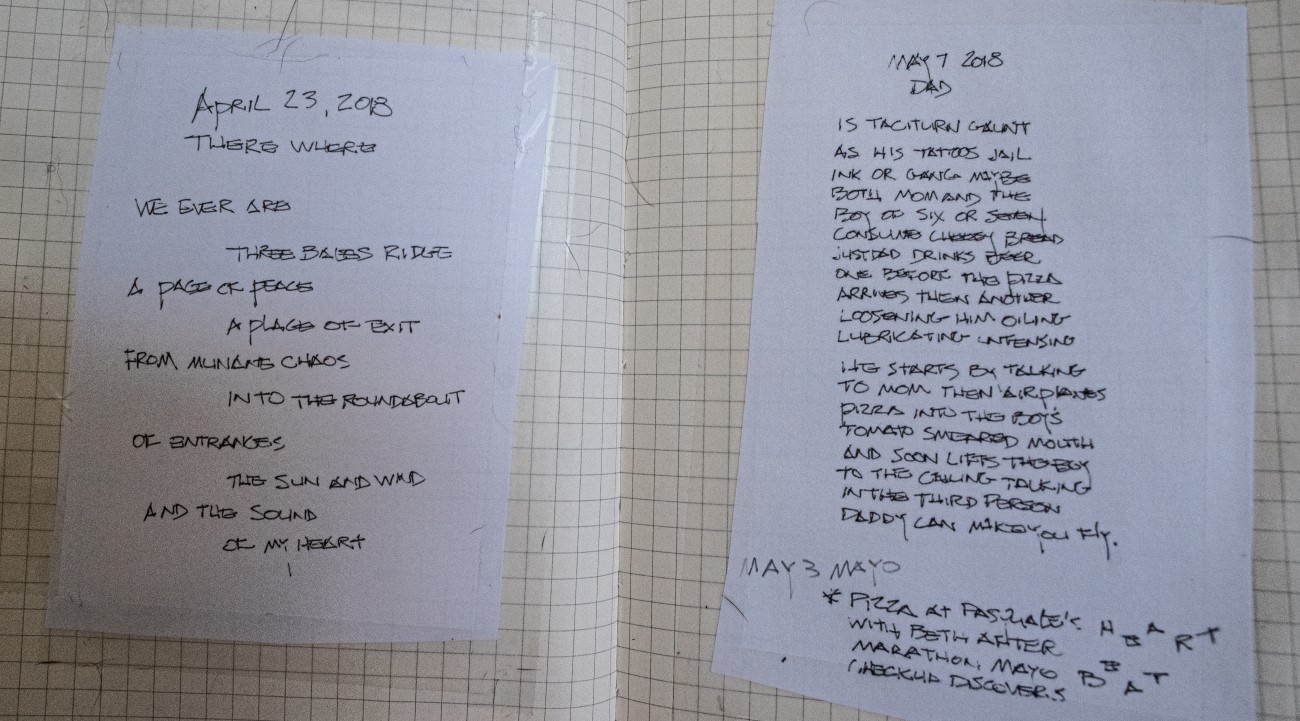 APRIL 23, 2018
THERE WHERE
WE EVER ARE
THREE BABES RIDGE
A PAGE OF PEACE
A PLACE OF EXIT
FROM MUNDANE CHAOS
INTO THE ROUNDABOUT
OF ENTRANCES
THE SUN AND WIND
AND THE SOUND
OF MY HEART
MAY 7 2018
DAD
IS TACITURN GAUNT
AS HIS TATTOOS JAIL
INK OR GANG MAYBE
BOTH MOM AND THE
BOY OF SIX OR SEVEN
CONSUME CHEESY BREAD
JUST DAD DRINKS BEER
ONE BEFORE THE PIZZA
ARRIVES THEN ANOTHER
LOOSENING HIM OILING
LUBRICATING UNTENSING
HE STARTS BY TALKING
TO MOM THEN AIRPLANES
PIZZA INTO THE BOY'S
TOMATO SMEARED MOUTH
AND SOON LIFTS THE BOY
TO THE CEILING TALKING
IN THE THIRD PERSON
DADDY CAN MAKE YOU FLY.
MAY 3 MAYO
* PIZZA AT PASQUALE'S
WITH BETH AFTER
MARATHON, MAYO
CHECKUP DISCOVERS
HEART
BEAT